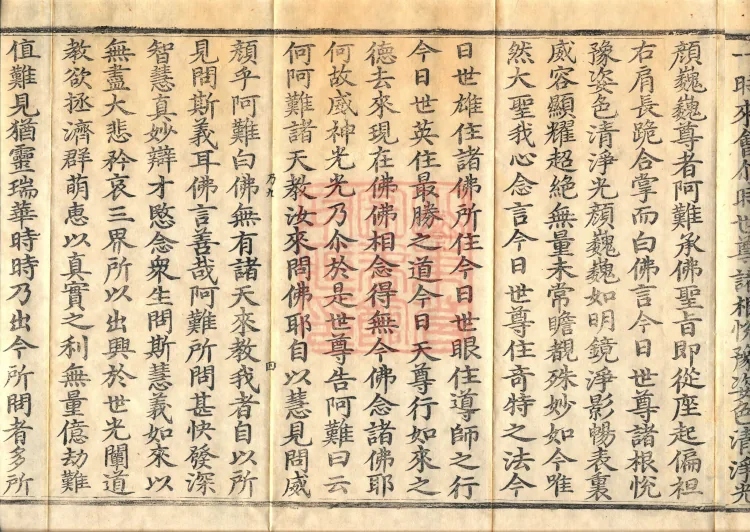 一時來會尒時世尊諸根悅豫姿色清淨光
顏巍巍尊者阿難承佛聖旨即從座起偏袒
右肩長跪合掌而白佛言今日世尊諸根悅
豫姿色清淨光顏巍巍如明鏡淨影暢表裏
威容顯耀超絕無量未常瞻覩殊妙如今唯
然大聖我心念言今日世尊住奇特之法今
日世雄住諸佛所住今日世眼住導師之行
今日世英住最勝之道今日天尊行如來之
德去來現在佛佛相念得無今佛念諸佛耶
何故威神光光乃尒於是世尊告阿難曰云
何阿難諸天教汝來問佛耶自以慧見問威
顏乎阿難白佛無有諸天來教我者自以所
見問斯義耳佛言善哉阿難所問甚快發深
智慧真妙辯才愍念衆生問斯慧義如來以
無盡大悲矜哀三界所以出興於世光闡道
教欲拯濟群萌惠以真實之利無量億劫難
值難見猶靈瑞華時時乃出今所問者多所